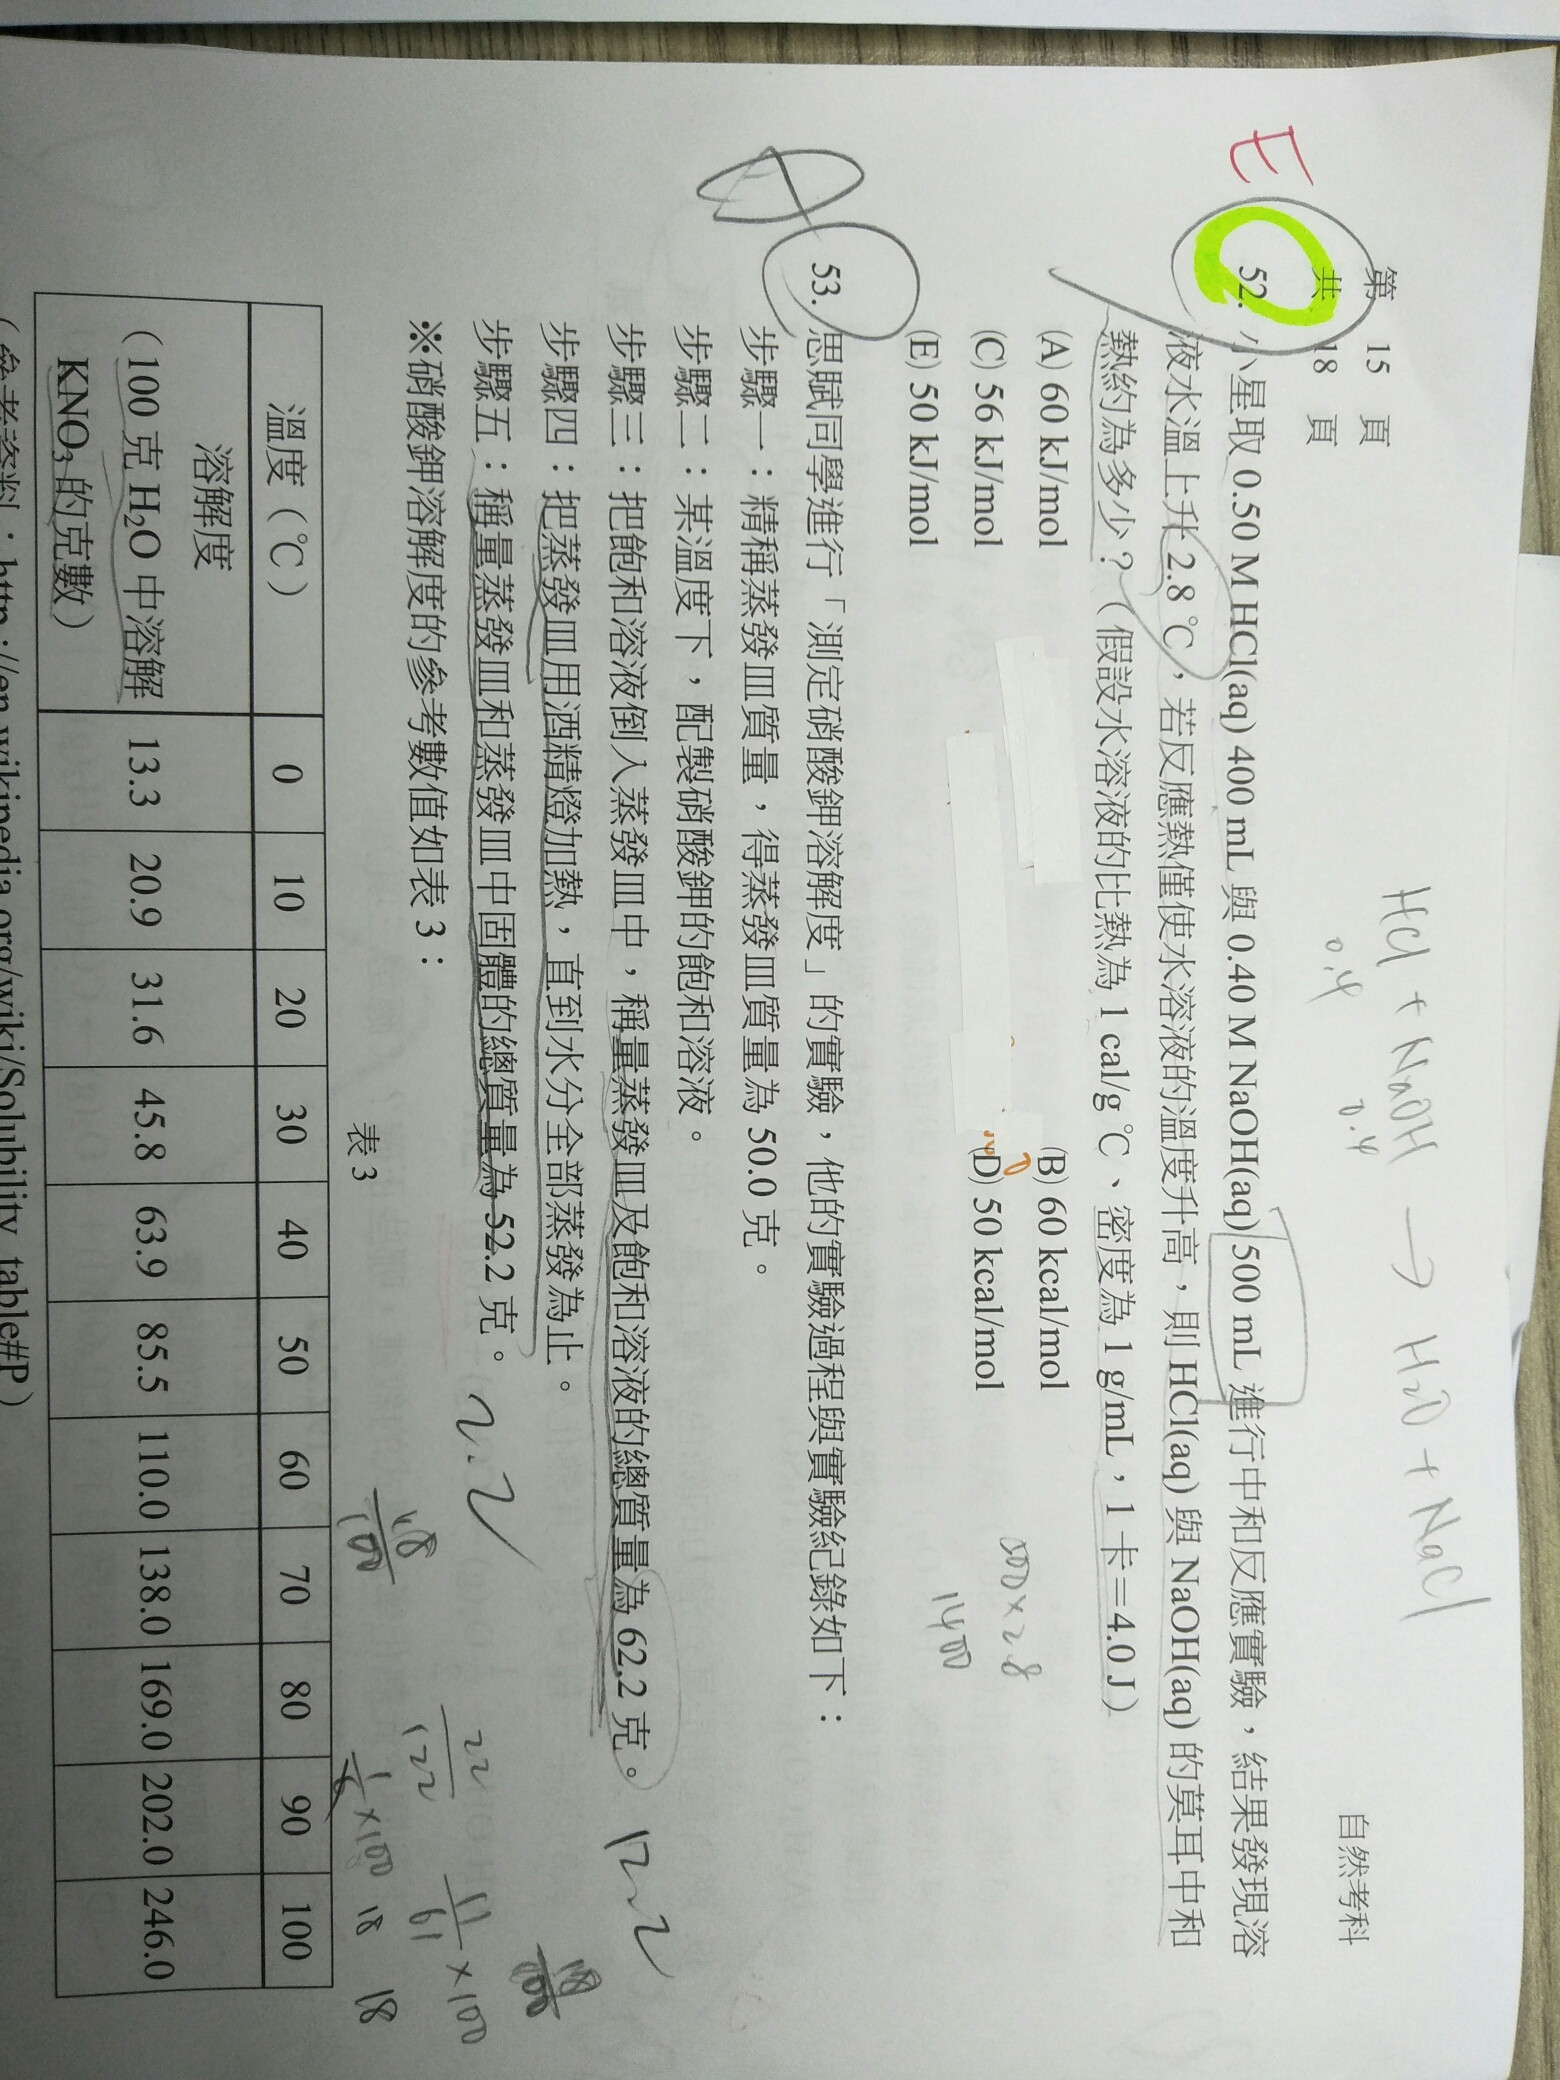 HCl + NaOH → H₂O + NaCl
0.4 0.4
第 15 頁
共 18 頁
自然考科
E
52. 小星取 0.50 M HCl(aq) 400 mL 與 0.40 M NaOH(aq) 500 mL 進行中和反應實驗，結果發現溶
液水溫上升 2.8 ℃，若反應熱僅使水溶液的溫度升高，則 HCl(aq) 與 NaOH(aq) 的莫耳中和
熱約為多少？（假設水溶液的比熱為 1 cal/g ℃、密度為 1 g/mL，1 卡＝4.0 J）
(A) 60 kJ/mol (B) 60 kcal/mol
(C) 56 kJ/mol (D) 50 kcal/mol
(E) 50 kJ/mol
500×2.8
1400
53. 思賦同學進行「測定硝酸鉀溶解度」的實驗，他的實驗過程與實驗紀錄如下：
步驟一：精稱蒸發皿質量，得蒸發皿質量為 50.0 克。
步驟二：某溫度下，配製硝酸鉀的飽和溶液。
步驟三：把飽和溶液倒入蒸發皿中，稱量蒸發皿及飽和溶液的總質量為 62.2 克。 12.2
步驟四：把蒸發皿用酒精燈加熱，直到水分全部蒸發為止。
步驟五：稱量蒸發皿和蒸發皿中固體的總質量為 52.2 克。 2.2
※硝酸鉀溶解度的參考數值如表 3：
18/100
22/122
11/61 ×100
1/6 ×100 18 18
表 3
溫度（℃） 0 10 20 30 40 50 60 70 80 90 100
溶解度
（100 克 H₂O 中溶解 13.3 20.9 31.6 45.8 63.9 85.5 110.0 138.0 169.0 202.0 246.0
KNO₃ 的克數）
（參考資料：http://en.wikipedia.org/wiki/Solubility_table#P）